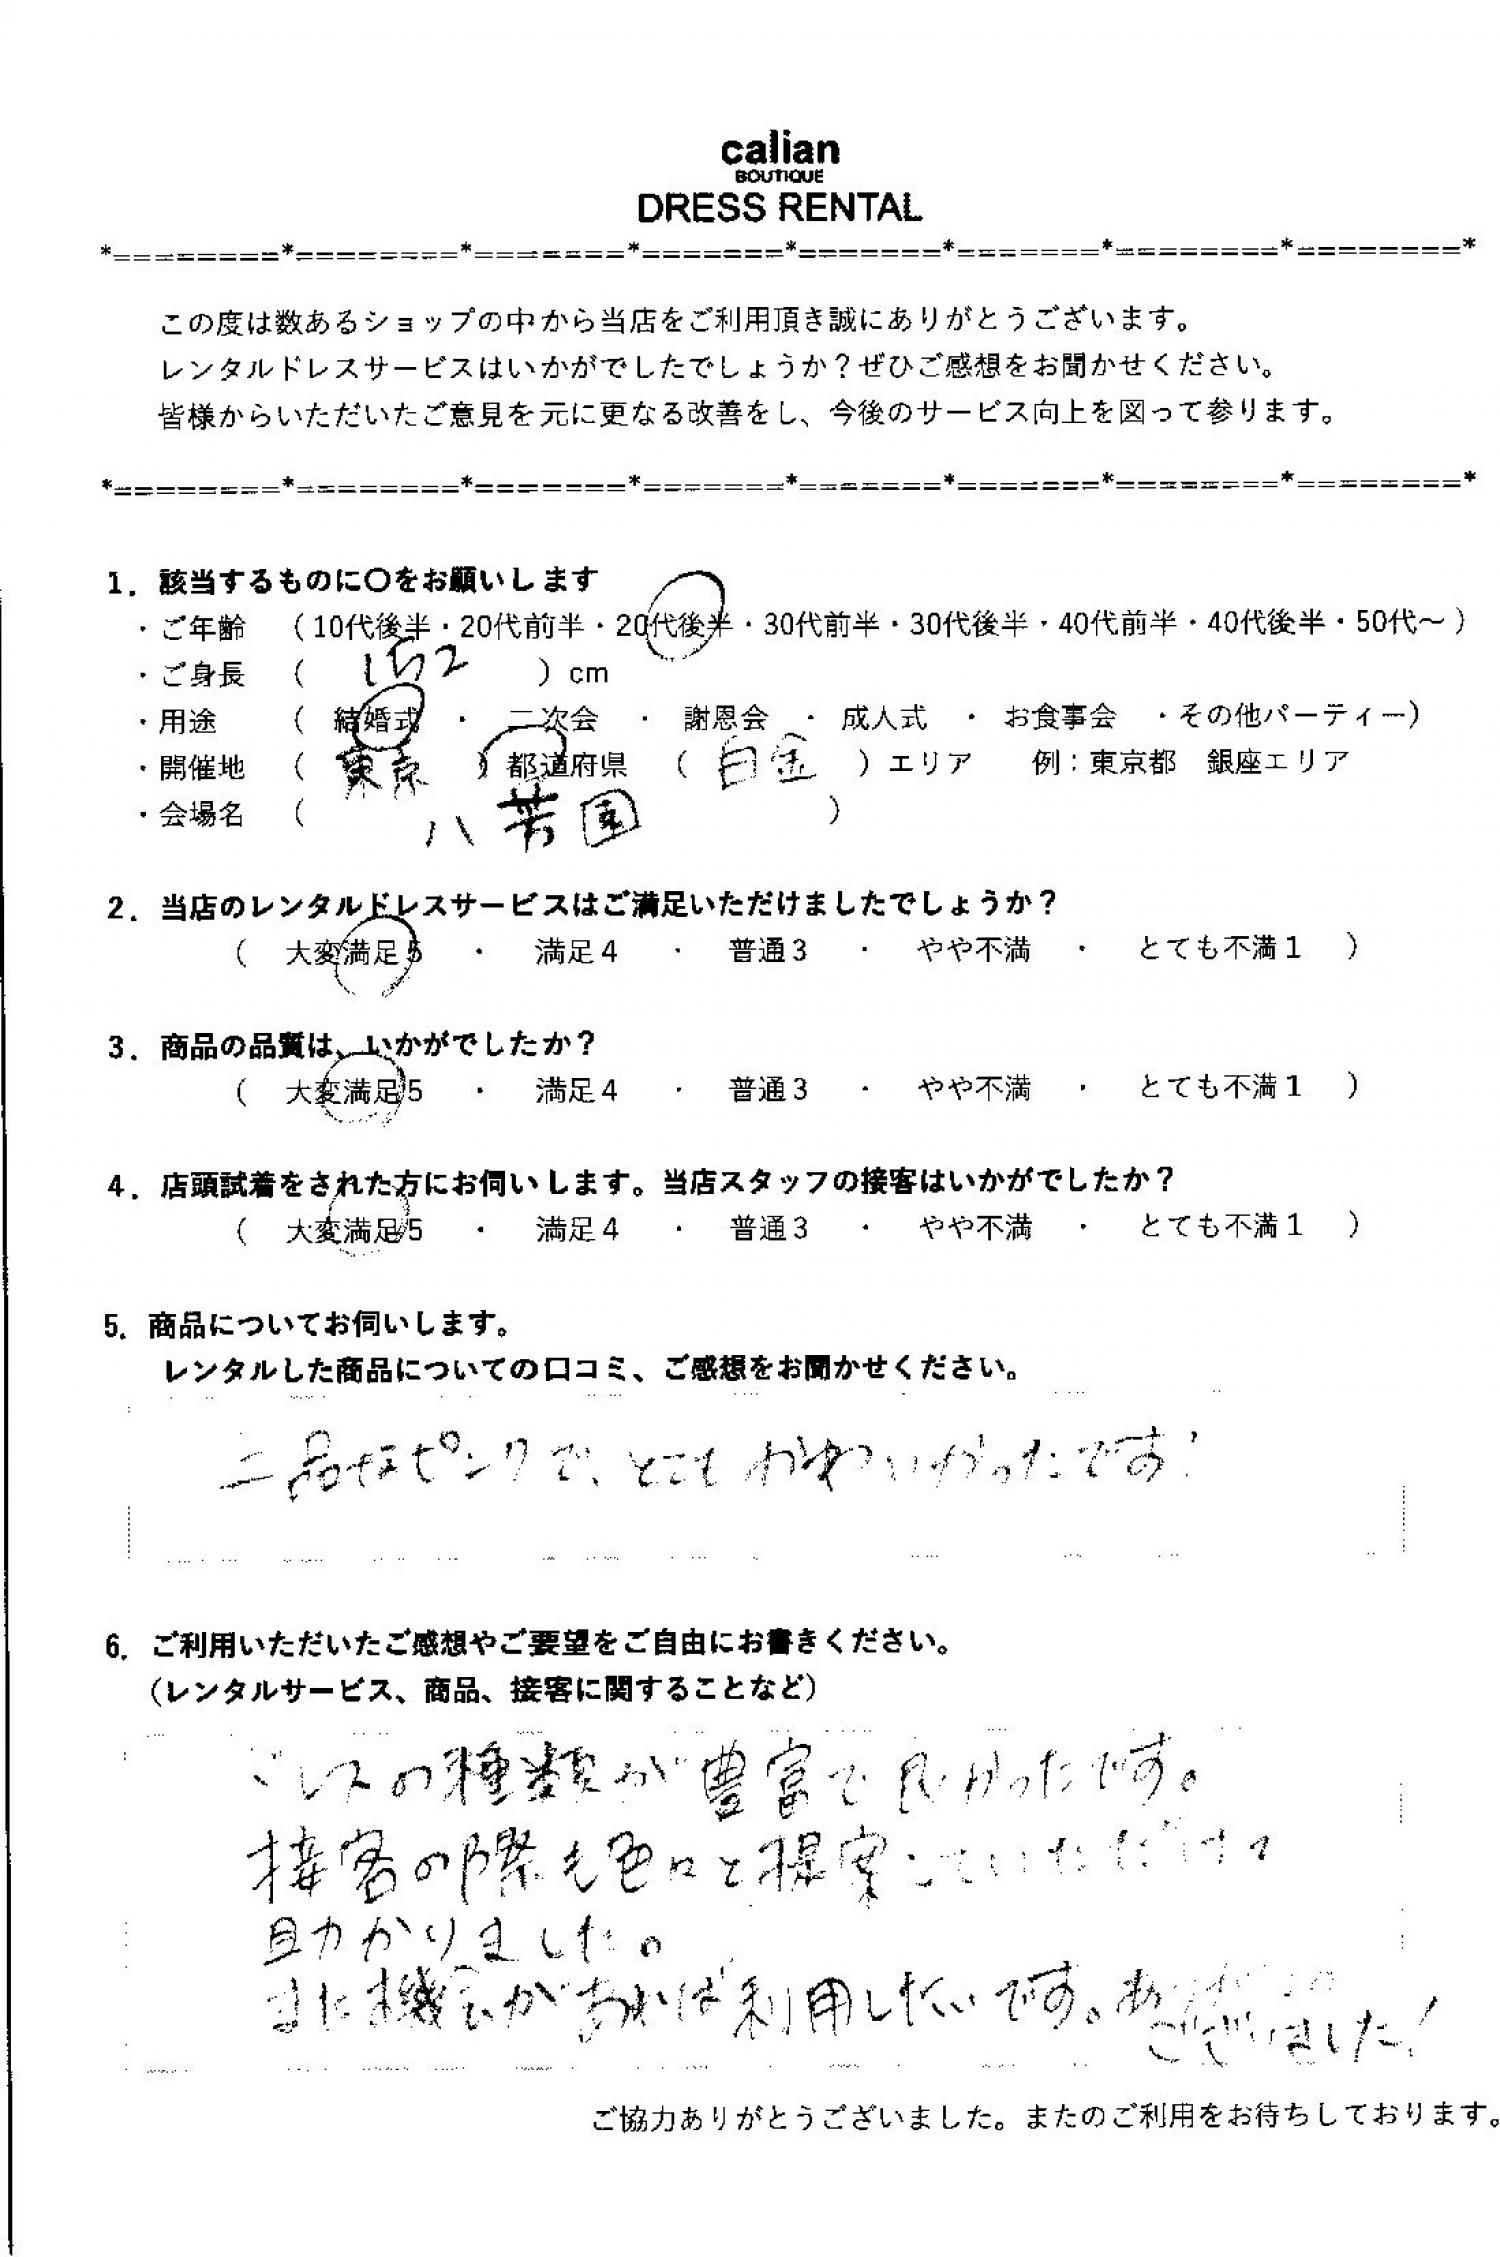 calian
BOUTIQUE
DRESS RENTAL
*=========*=========*========*========*========*========*=========*=========*
この度は数あるショップの中から当店をご利用頂き誠にありがとうございます。
レンタルドレスサービスはいかがでしたでしょうか？ぜひご感想をお聞かせください。
皆様からいただいたご意見を元に更なる改善をし、今後のサービス向上を図って参ります。
*=========*=========*========*========*========*========*=========*=========*
1．該当するものに〇をお願いします
・ご年齢 （10代後半・20代前半・20代後半・30代前半・30代後半・40代前半・40代後半・50代～）
・ご身長 （ 152 ）cm
・用途 （ 結婚式 ・ 二次会 ・ 謝恩会 ・ 成人式 ・ お食事会 ・その他パーティー）
・開催地 （ 東京 ）都道府県 （ 白金 ）エリア 例：東京都 銀座エリア
・会場名 （ 八芳園 ）
2．当店のレンタルドレスサービスはご満足いただけましたでしょうか？
（ 大変満足5 ・ 満足4 ・ 普通3 ・ やや不満 ・ とても不満1 ）
3．商品の品質は、いかがでしたか？
（ 大変満足5 ・ 満足4 ・ 普通3 ・ やや不満 ・ とても不満1 ）
4．店頭試着をされた方にお伺いします。当店スタッフの接客はいかがでしたか？
（ 大変満足5 ・ 満足4 ・ 普通3 ・ やや不満 ・ とても不満1 ）
5．商品についてお伺いします。
レンタルした商品についての口コミ、ご感想をお聞かせください。
上品なピンクで、とてもかわいかったです！
6．ご利用いただいたご感想やご要望をご自由にお書きください。
（レンタルサービス、商品、接客に関することなど）
ドレスの種類が豊富で良かったです。
接客の際も色々と提案していただけて
助かりました。
また機会があれば利用したいです。ありがとう
ございました！
ご協力ありがとうございました。またのご利用をお待ちしております。